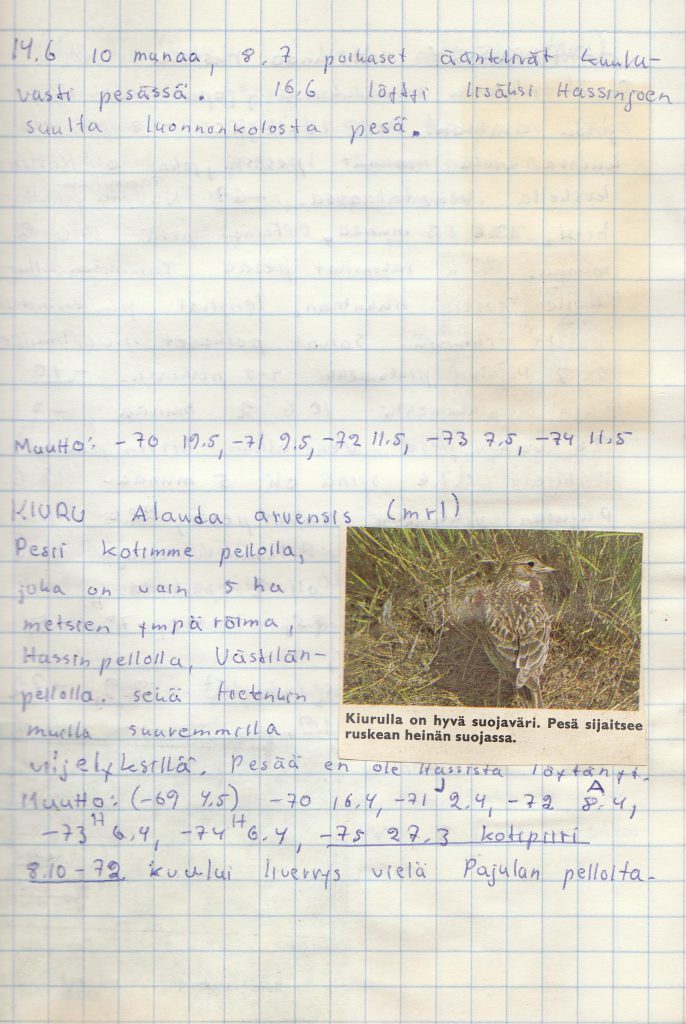 14.6 10 munaa, 8.7 poikaset ääntelivät kuulu-
vasti pesässä. 16.6 löytyi lisäksi Hassinjoen
suulta luonnonkolosta pesä.
Muutto: -70 19.5, -71 9.5, -72 11.5, -73 7.5, -74 11.5
KIURU Alauda arvensis (mrl)
Pesii kotimme pellolla,
joka on vain 5 ha
metsien ympäröimä,
Hassinpellolla, Västilän-
pellolla. sekä tietenkin
muilla suuremmilla
viljelyksillä. Pesää en ole Hassista löytänyt.
Kiurulla on hyvä suojaväri. Pesä sijaitsee
ruskean heinän suojassa.
Muutto: (-69 4.5) -70 16.4, -71 J 2.4, -72 A 8.4,
-73 H 6.4, -74 H 6.4, -75 27.3 kotipiiri
8.10-72 kuului liverrys vielä Pajulan pellolta.